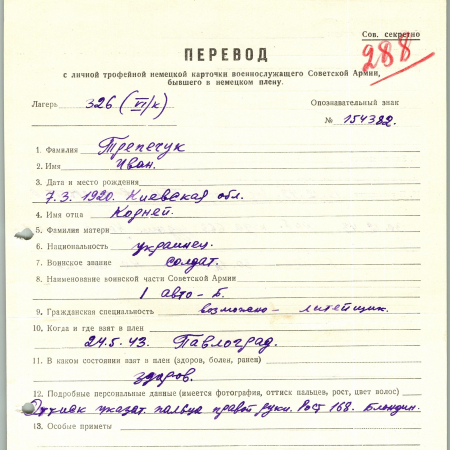 Сов. секретно
288
ПЕРЕВОД
с личной трофейной немецкой карточки военнослужащего Советской Армии,
бывшего в немецком плену.
Лагерь 326 (VI/к) Опознавательный знак
№ 154382.
1. Фамилия Трепечук
2. Имя Иван.
3. Дата и место рождения
7.3.1920. Киевская обл.
4. Имя отца Корней.
5. Фамилия матери
6. Национальность украинец.
7. Воинское звание солдат.
8. Наименование воинской части Советской Армии
1 авто-Б.
9. Гражданская специальность возможно - литейщик.
10. Когда и где взят в плен
24.5.43. Павлоград.
11. В каком состоянии взят в плен (здоров, болен, ранен)
здоров.
12. Подробные персональные данные (имеется фотография, оттиск пальцев, рост, цвет волос)
Оттиск указат. пальца правой руки. Рост 168. Блондин.
13. Особые приметы